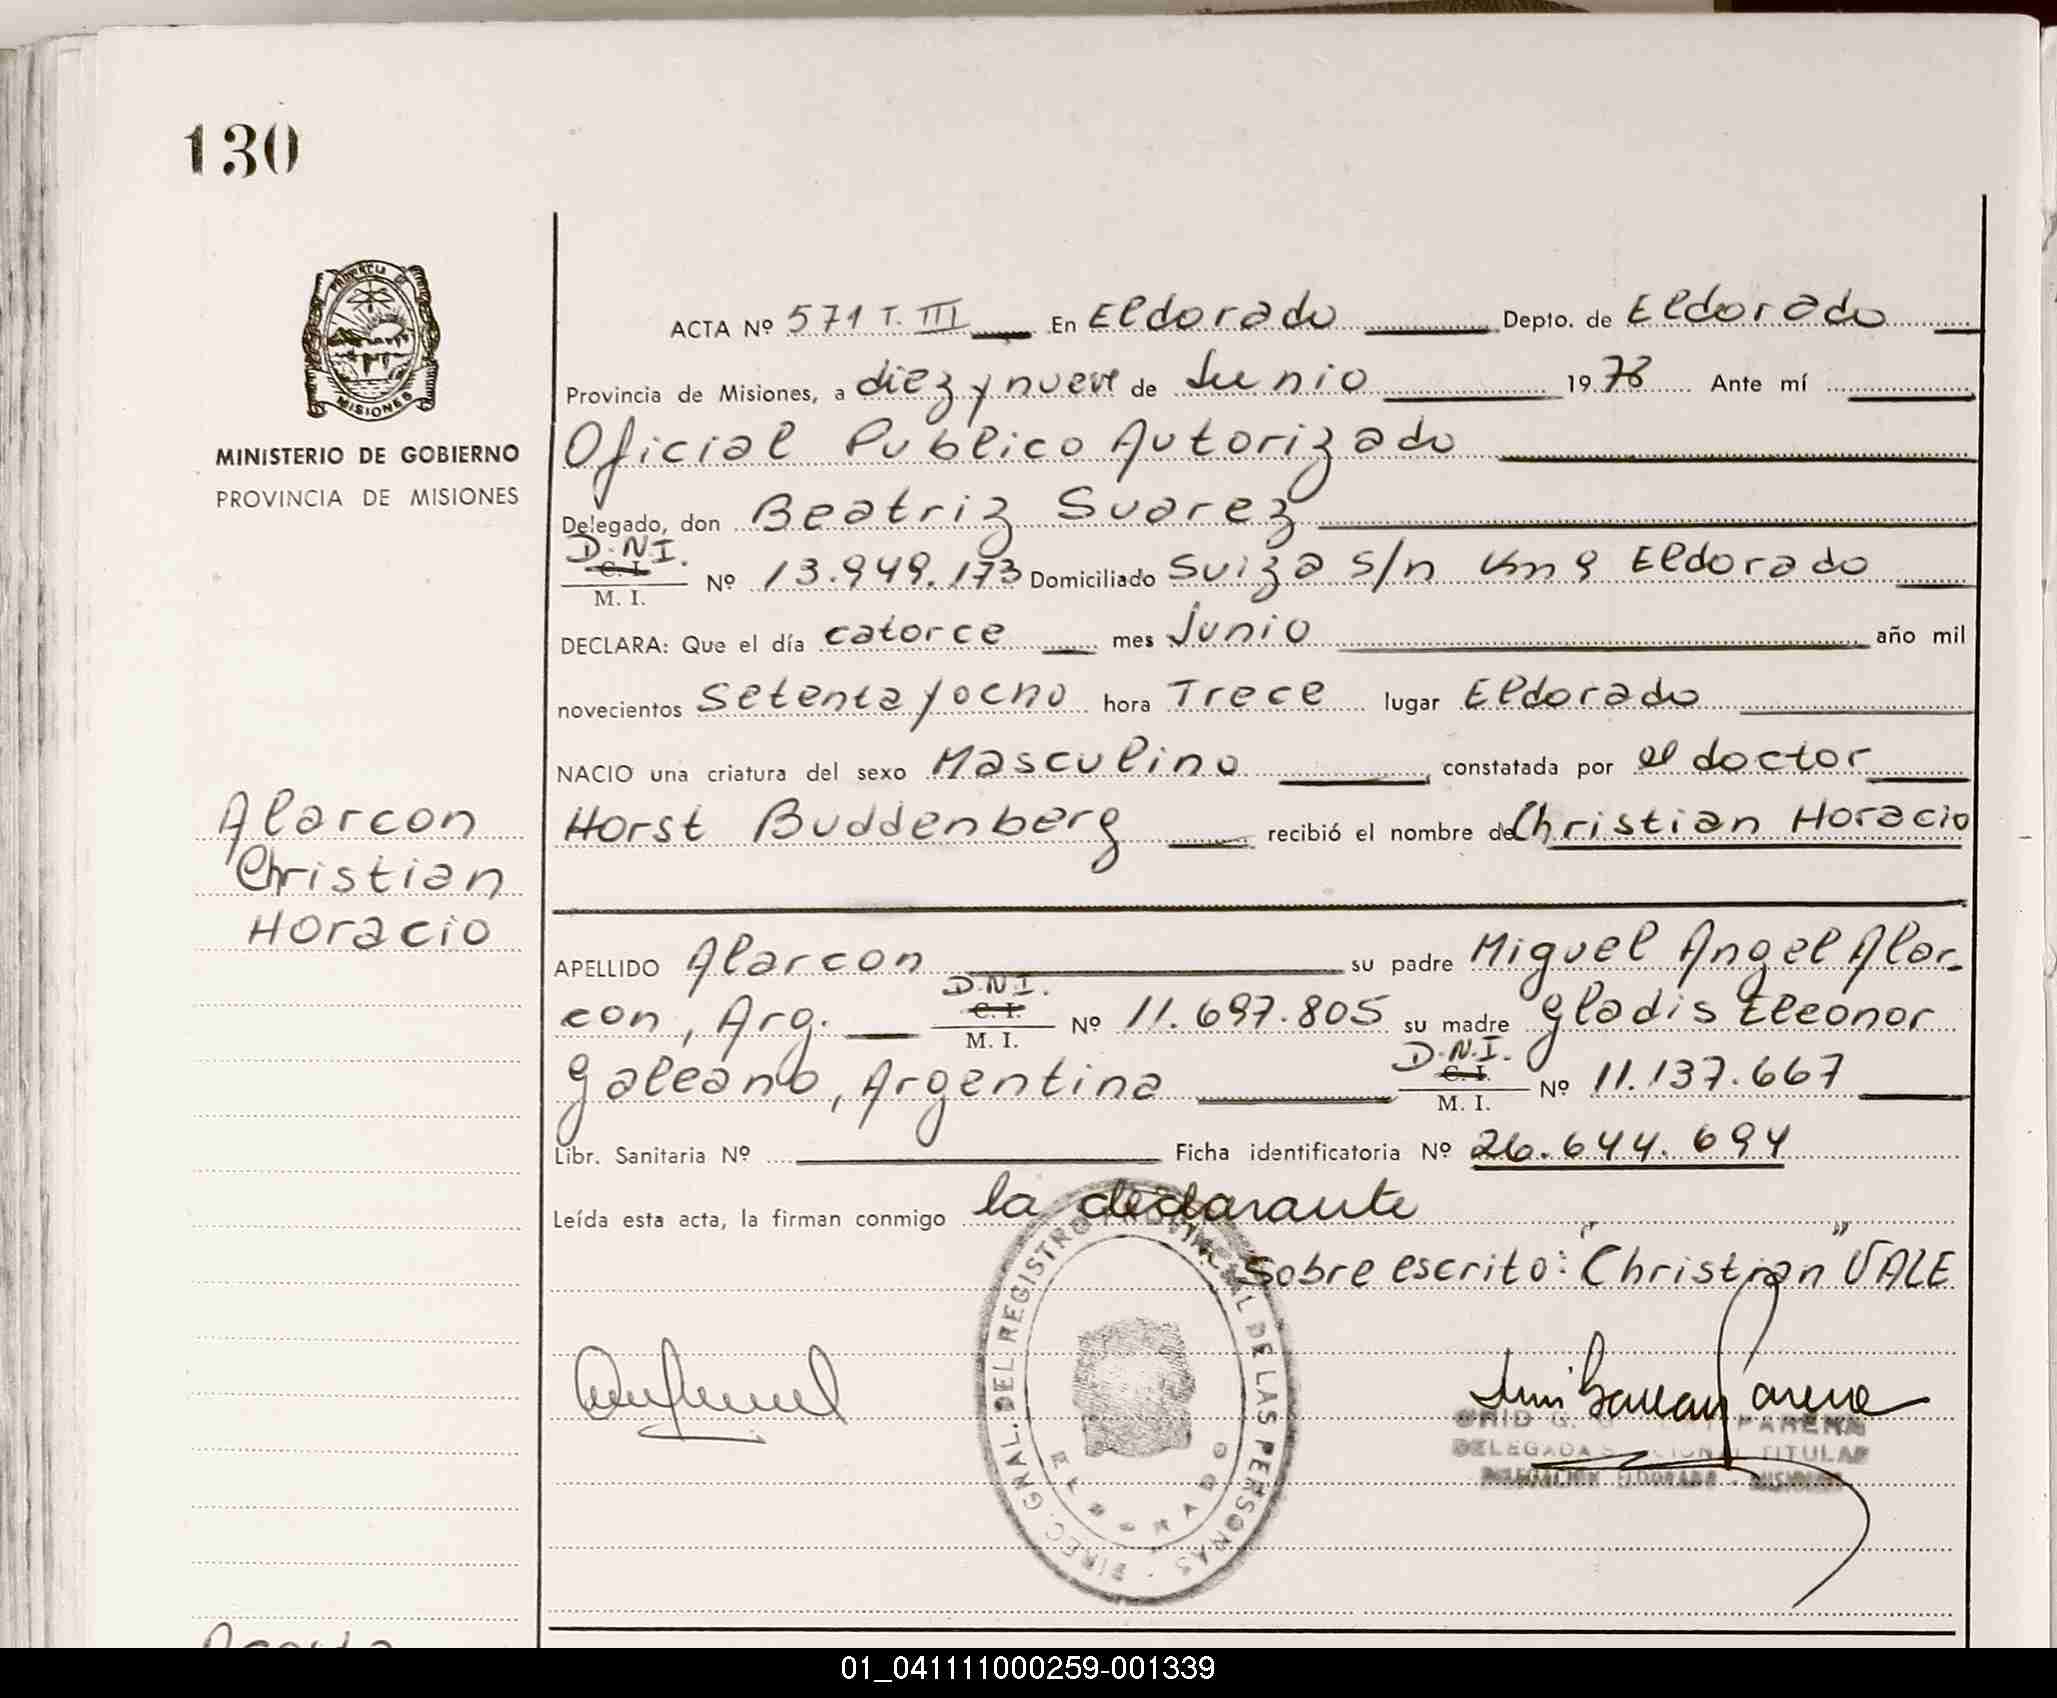 130
PROVINCIA DE
MISIONES
MINISTERIO DE GOBIERNO
PROVINCIA DE MISIONES
Alarcon
Christian
Horacio
ACTA Nº 571 T. III En Eldorado Depto. de Eldorado
Provincia de Misiones, a diez y nueve de Junio 1978 Ante mí
Oficial Publico Autorizado
Delegado, don Beatriz Suarez
D.N.I.
C. I.
M. I. Nº 13.949.173 Domiciliado Suiza s/n Km 9 Eldorado
DECLARA: Que el día catorce mes Junio año mil
novecientos Setenta y ocho hora Trece lugar Eldorado
NACIO una criatura del sexo Masculino, constatada por el doctor
Horst Buddenberg recibió el nombre de Christian Horacio
APELLIDO Alarcon su padre Miguel Angel Alar-
con, Arg. D.N.I. C. I. M. I. Nº 11.697.805 su madre Gladis Eleonor
Galeano, Argentina D.N.I. C. I. M. I. Nº 11.137.667
Libr. Sanitaria Nº Ficha identificatoria Nº 26.644.694
Leída esta acta, la firman conmigo la declarante
Sobre escrito: "Christian" VALE
DIREC. GRAL. DEL REGISTRO PROVINCIAL DE LAS PERSONAS
ELDORADO
PARENA
DELEGADA TITULAR
DELEGACION ELDORADO - MISIONES
01_041111000259-001339